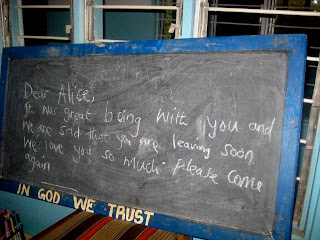 Dear Alice,
It was great being with you and
we are sad that you are leaving soon.
We love you so much. Please come
again
IN GOD WE TRUST